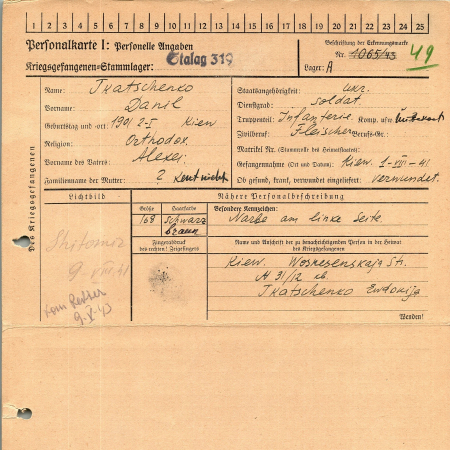 1 2 3 4 5 6 7 8 9 10 11 12 13 14 15 16 17 18 19 20 21 22 23 24 25
Personalkarte I: Personelle Angaben
Kriegsgefangenen-Stammlager: Stalag 319
Beschriftung der Erkennungsmarke
Nr. 1065/43
49
Lager: A
Des Kriegsgefangenen
Name: Tkatschenko
Vorname: Danil
Geburtstag und -ort: 1901 2-I Kiew
Religion: Orthodox
Vorname des Vaters: Alexei
Familienname der Mutter: ? kent nicht
Staatsangehörigkeit: ukr.
Dienstgrad: Soldat.
Truppenteil: Infanterie. Komp. usw.
Zivilberuf: Fleischer Berufs-Gr.:
Matrikel Nr. (Stammrolle des Heimatstaates):
Gefangennahme (Ort und Datum): Kiew. 1-VIII-41
Ob gesund, krank, verwundet eingeliefert: verwundet.
Lichtbild
Nähere Personalbeschreibung
Größe Haarfarbe Besondere Kennzeichen:
168 schwarz braun Narbe am linke Seite.
Fingerabdruck
des rechten! Zeigefingers
Name und Anschrift der zu benachrichtigenden Person in der Heimat
des Kriegsgefangenen
Kiew. Wosnesenskaja Str.
N 31/12
Tkatschenko Ewdokija
Shitomir
9. VIII. 41
9.V.43
Wenden!